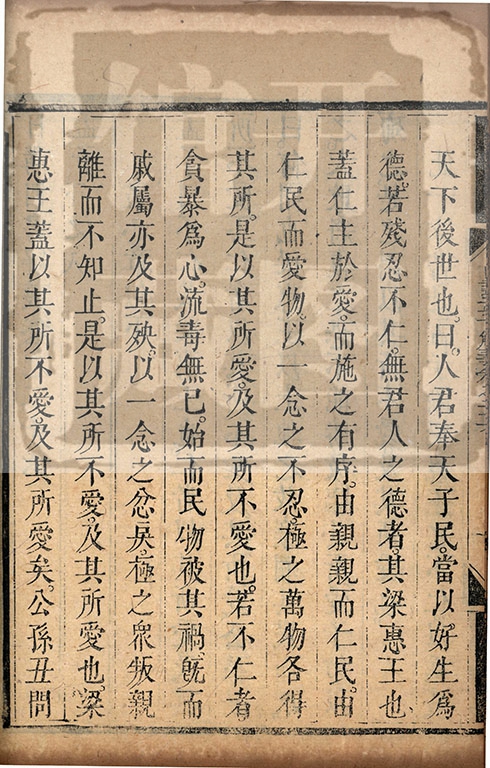 天下後世也。曰。人君奉天子民。當以好生爲
德。若殘忍不仁。無君人之德者。其梁惠王也
蓋仁主於愛。而施之有序。由親親而仁民。由
仁民而愛物。以一念之不忍。極之萬物各得
其所。是以其所愛。及其所不愛也。若不仁者
貪暴爲心。流毒無已。始而民物被其禍。旣而
戚屬亦及其殃。以一念之忿戾。極之衆叛親
離而不知止。是以其所不愛。及其所愛也。梁
惠王蓋以其所不愛。及其所愛矣。公孫丑問